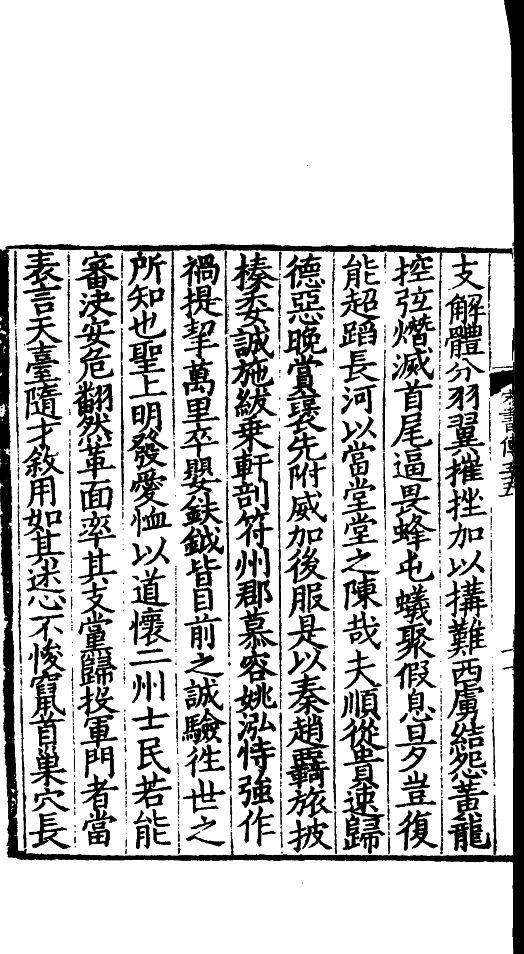 支解體分羽翼摧挫加以搆難西虜結怨黃龍
控弦熸滅首尾逼畏蜂屯蟻聚假息旦夕豈復
能超蹈長河以當堂堂之陳哉夫順從貴速歸
德惡晚賞褒先附威加後服是以秦趙羇旅披
榛委誠施紱乗軒剖符州郡慕容姚泓恃強作
禍提挈萬里卒嬰鈇鉞皆目前之誠驗徃世之
所知也聖上明發愛恤以道懷二州士民若能
審決安危翻然革面率其支黨歸投軍門者當
表言天臺隨才敘用如其迷心不悛竄首巢穴長